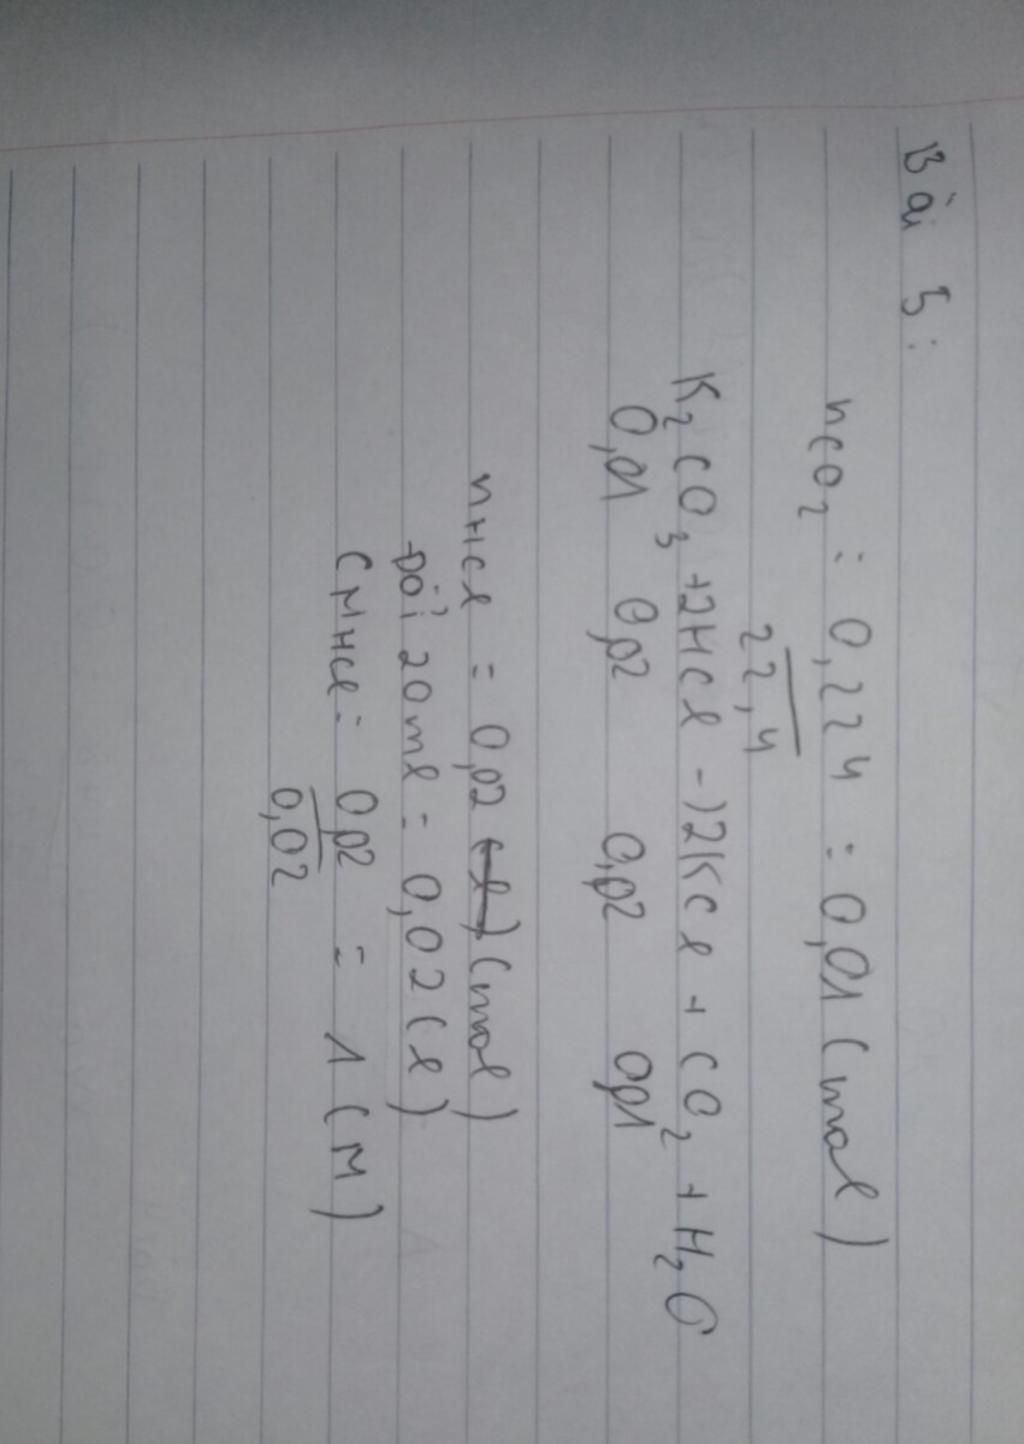 Bài 5:
nCO₂ = 0,224 / 22,4 = 0,01 (mol)
K₂CO₃ + 2HCl -> 2KCl + CO₂ + H₂O
0,01 0,02 0,02 0,01
nHCl = 0,02 (l) (mol)
Đổi 20ml = 0,02 (l)
CMHCl = 0,02 / 0,02 = 1 (M)